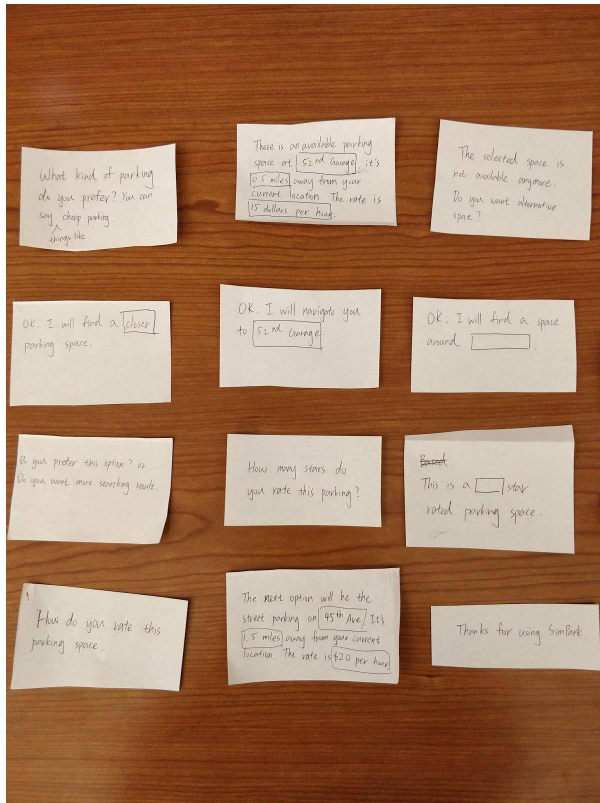 What kind of parking
do you prefer? You can
say cheap parking.
things like
There is an available parking
space at 52nd Garage. it's
0.5 miles away from your
current location. The rate is
15 dollars per hour.
The selected space is
not available anymore.
Do you want alternative
space?
OK. I will find a closer
parking space.
OK. I will navigate you
to 52nd Garage.
OK. I will find a space
around
Do you prefer this option? or
Do you want more searching result.
How many stars do
you rate this parking?
Based
This is a star
rated parking space.
How do you rate this
parking space.
The next option will be the
street parking on 45th Ave. It's
1.5 miles away from your current
location. The rate is $20 per hour
Thanks for using SimPark